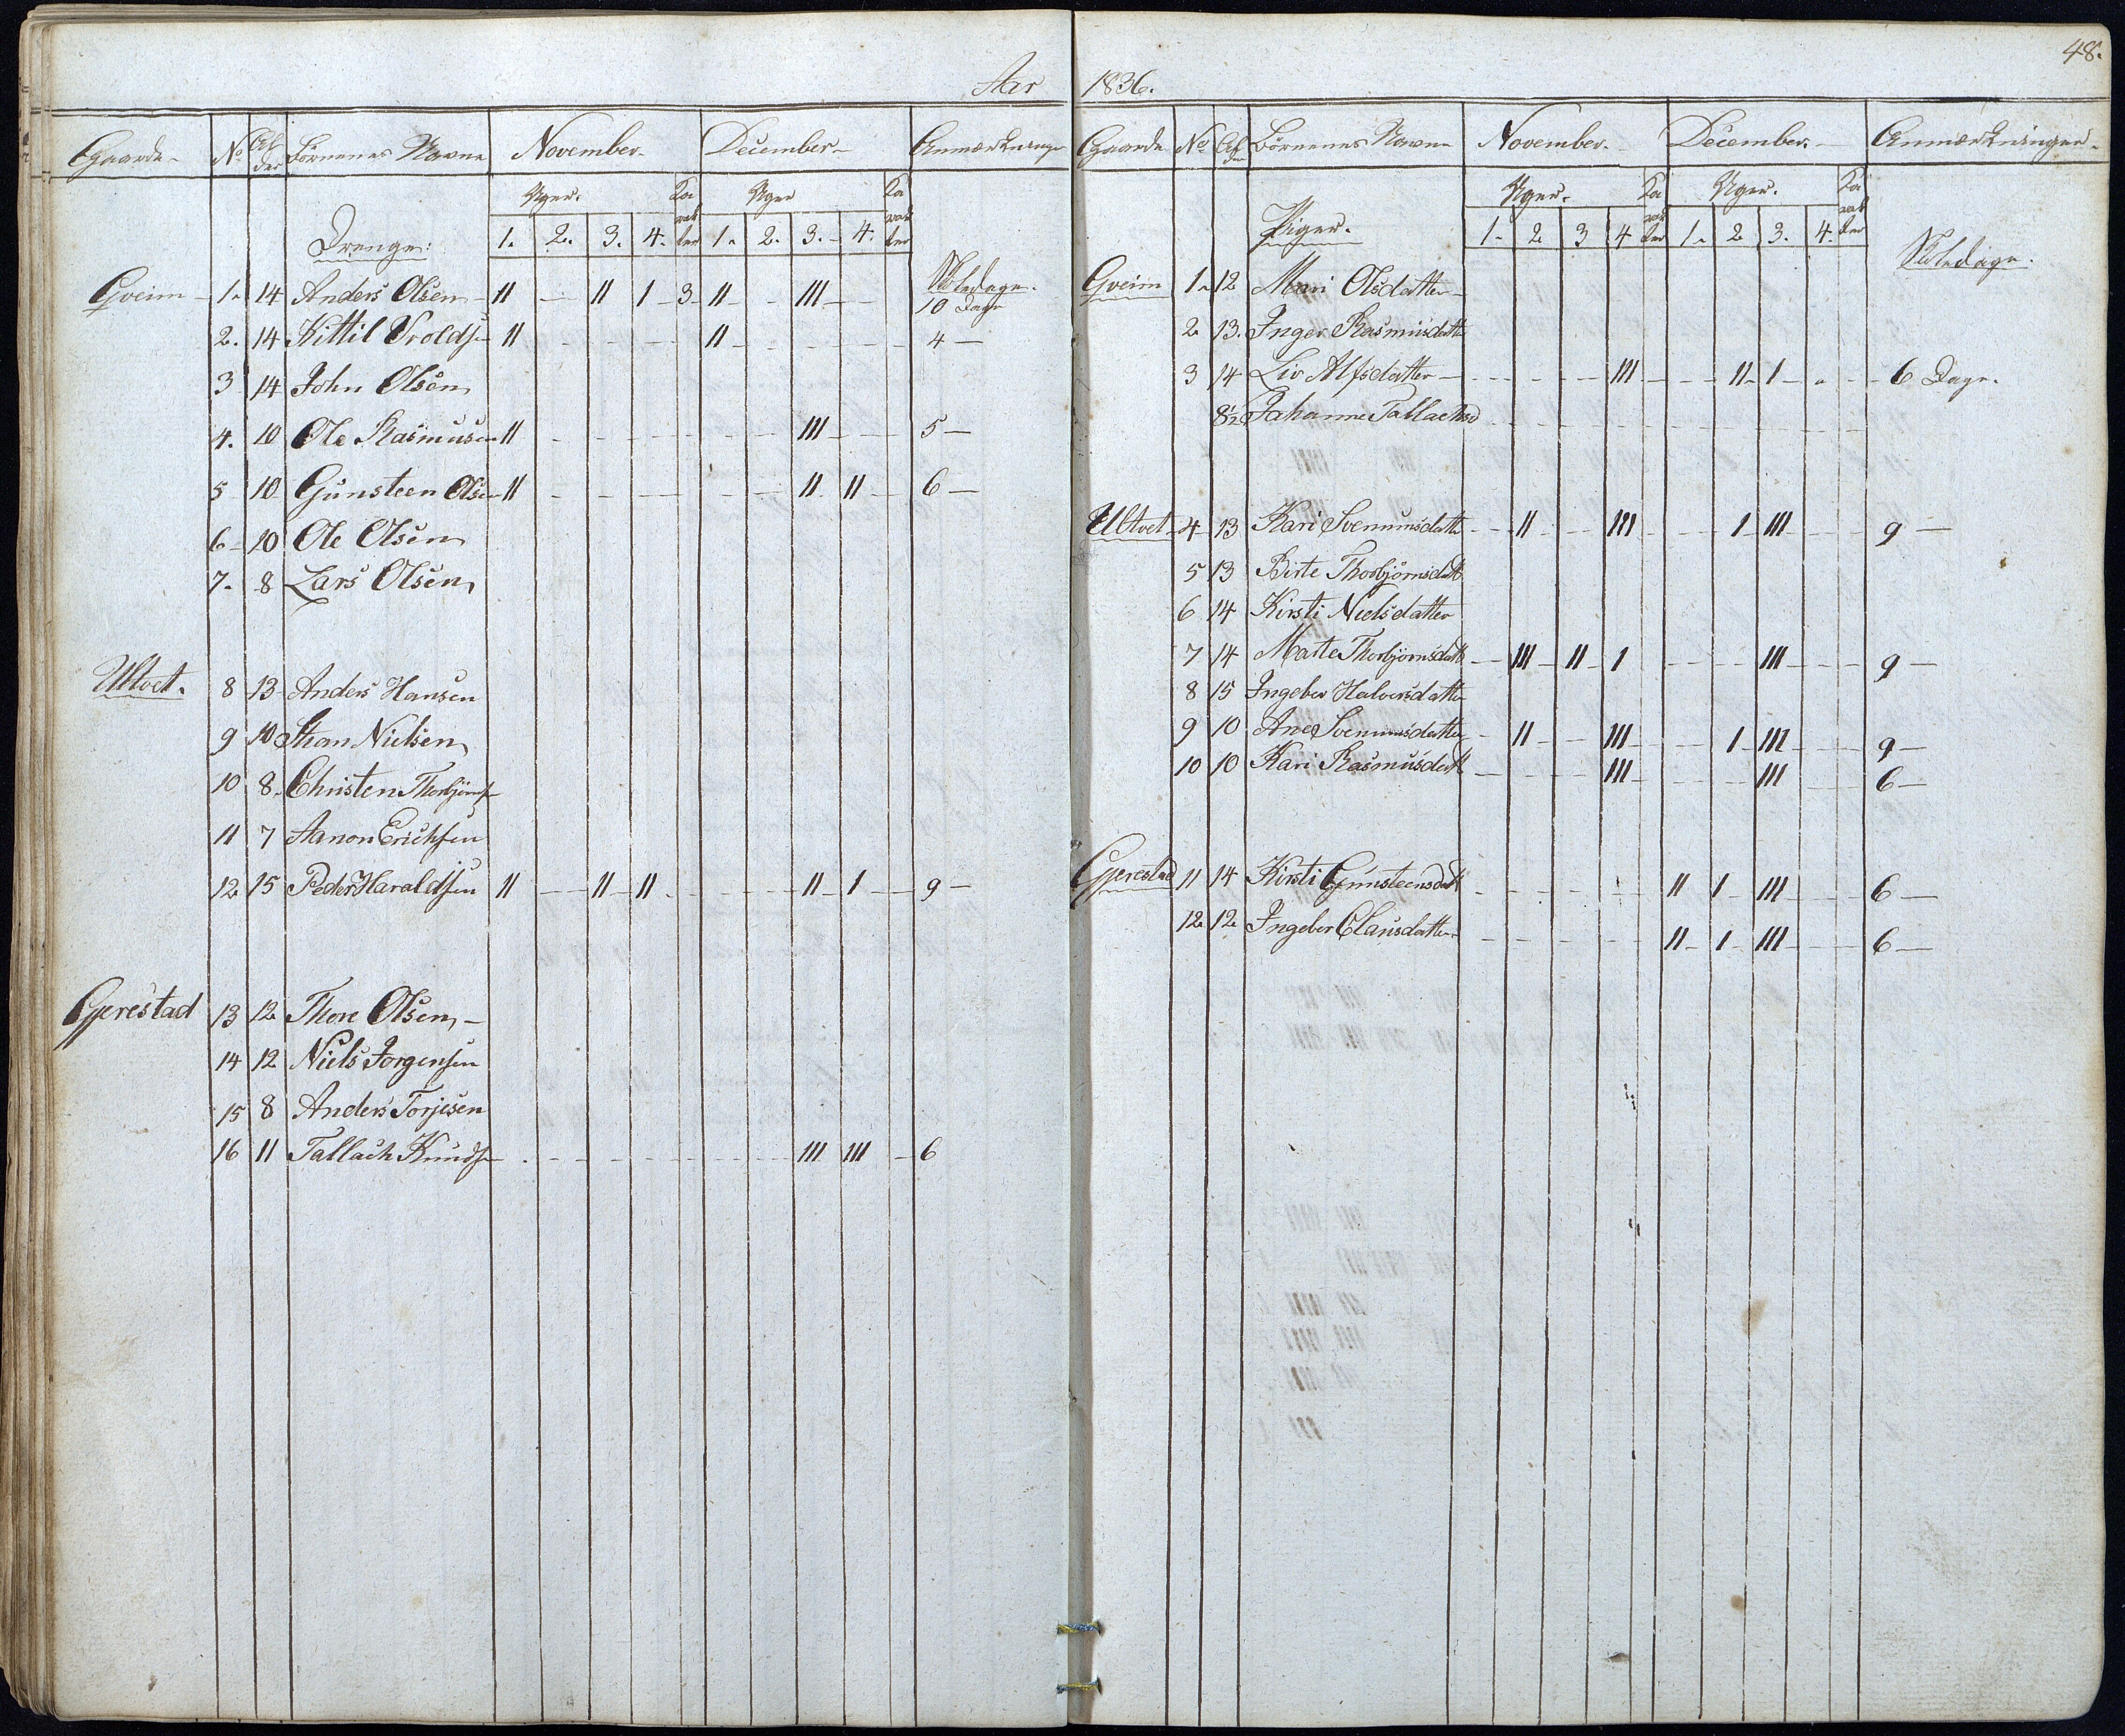 48.
Aar 1836.
Gaarde No Alder Börnenes Navne November December Anmærkninger
Uger. Karakter Uger Karakter
Drenge: 1. 2. 3. 4. 1. 2. 3. 4.
Skoledage.
Gveim 1. 14 Anders Olsen II II I 3 II III 10 Dage
2. 14 Kittil Vroldsen II II 4
3 14 John Olsen
4. 10 Ole Rasmusen II III 5
5 10 Gunsteen Olsen II II II 6
6 10 Ole Olsen
7. 8 Lars Olsen
Ultvet. 8 13 Anders Hansen
9 10 Nielsen
10 8. Christen Thorbjörns
11 7 Aanon Erichsen
12 15 Peder Haraldsen II II II II I 9
Gjerestad 13 12 Thore Olsen
14 12 Niels Jorgensen
15 8 Anders Torjesen
16 11 Tallach Knuds III III 6
Gaarde No Alder Börnenes Navne November. December. Anmærkninger.
Uger. Karakter Uger. Karakter
Piger. 1. 2 3 4 1. 2 3. 4.
Skoledage.
Gveim 1. 12 Mari Olsdatter
2 13. Inger Rasmusdatt
3 14 Liv Alfsdatter III II I 6 Dage.
8½ Johanne Tallachsd
Ultvet 4 13 Kari Svenumsdatte II III I III 9
5 13 Birte Thorbjörnsdatt
6 14 Kirsti Nielsdatter
7 14 Marte Thorbjornsdatt III II I III 9
8 15 Ingebor Halvorsdatter
9 10 Ane Svenumsdatter II III I III 9
10 10 Kari Rasmusdatt III III 6
Gjerestad 11 14 Kirsti Gunsteensdatt II I III 6
12 12 Ingebor Clausdatter II I III 6